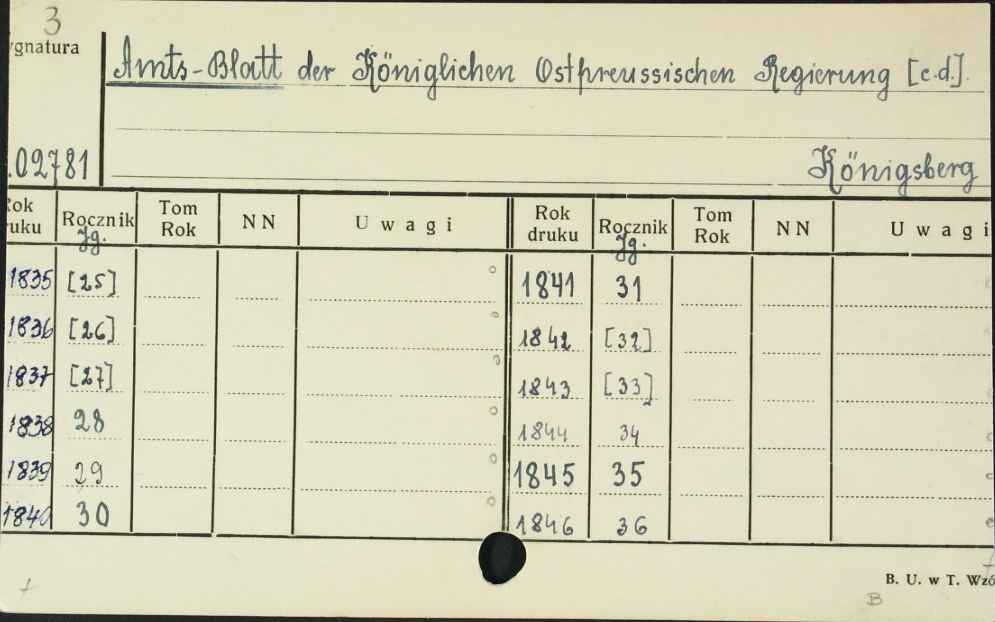 3
ygnatura
Amts-Blatt der Königlichen Ostpreussischen Regierung [c.d.].
.02781
Königsberg
Rok druku Rocznik Jg. Tom Rok NN Uwagi Rok druku Rocznik Jg. Tom Rok NN Uwagi
1835 [25] 1841 31
1836 [26] 1842 [32]
1837 [27] 1843 [33]
1838 28 1844 34
1839 29 1845 35
1840 30 1846 36
B. U. w T. Wzó
B